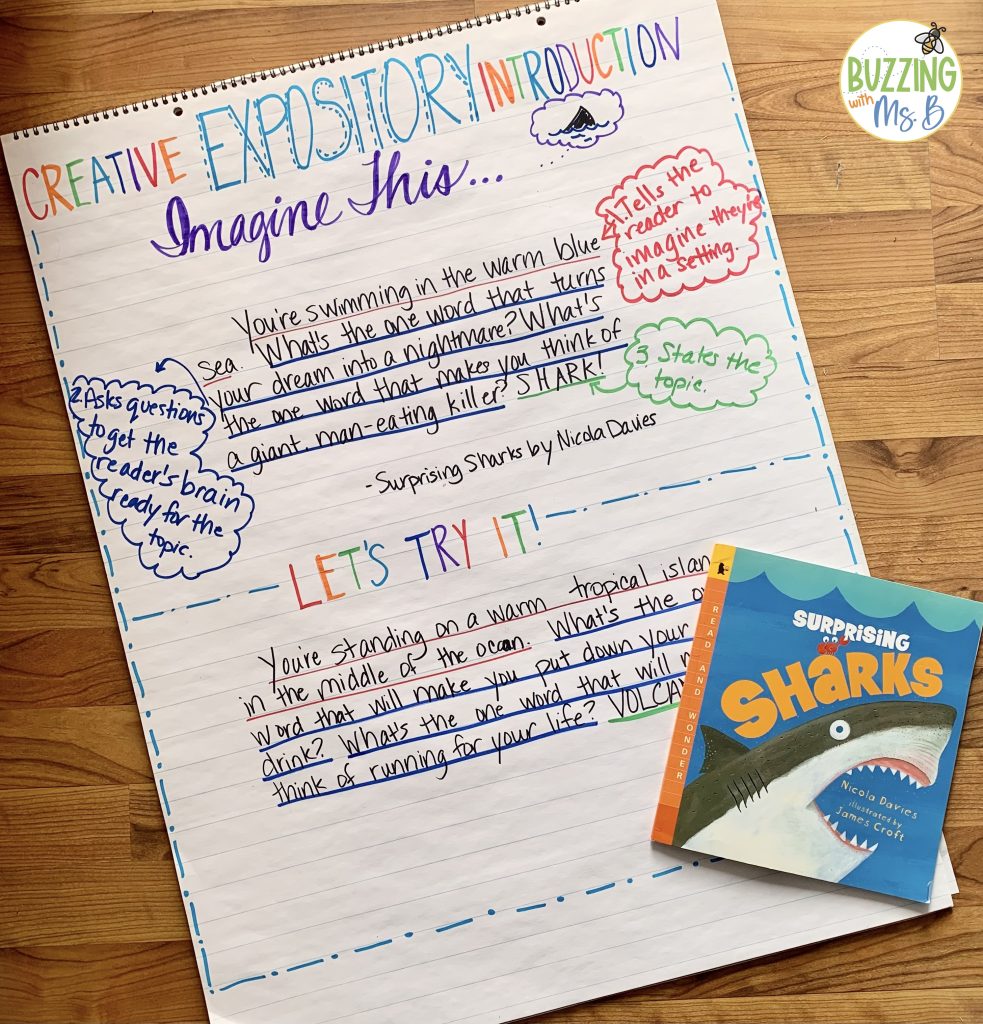 BUZZING
with
Ms. B
CREATIVE EXPOSITORY INTRODUCTION
Imagine This...
1. Tells the
reader to
imagine they're
in a setting.
You're swimming in the warm blue
sea. What's the one word that turns
your dream into a nightmare? What's
the one word that makes you think of
a giant, man-eating killer? SHARK!
2. Asks questions
to get the
reader's brain
ready for the
topic.
3 States the
topic.
- Surprising Sharks by Nicola Davies
LET'S TRY IT!
You're standing on a warm tropical islan
in the middle of the ocean. What's the
word that will make you put down your
drink? What's the one word that will
think of running for your life? VOLCA
READ AND WONDER
SURPRISING
SHARKS
Nicola Davies
illustrated by
James Croft